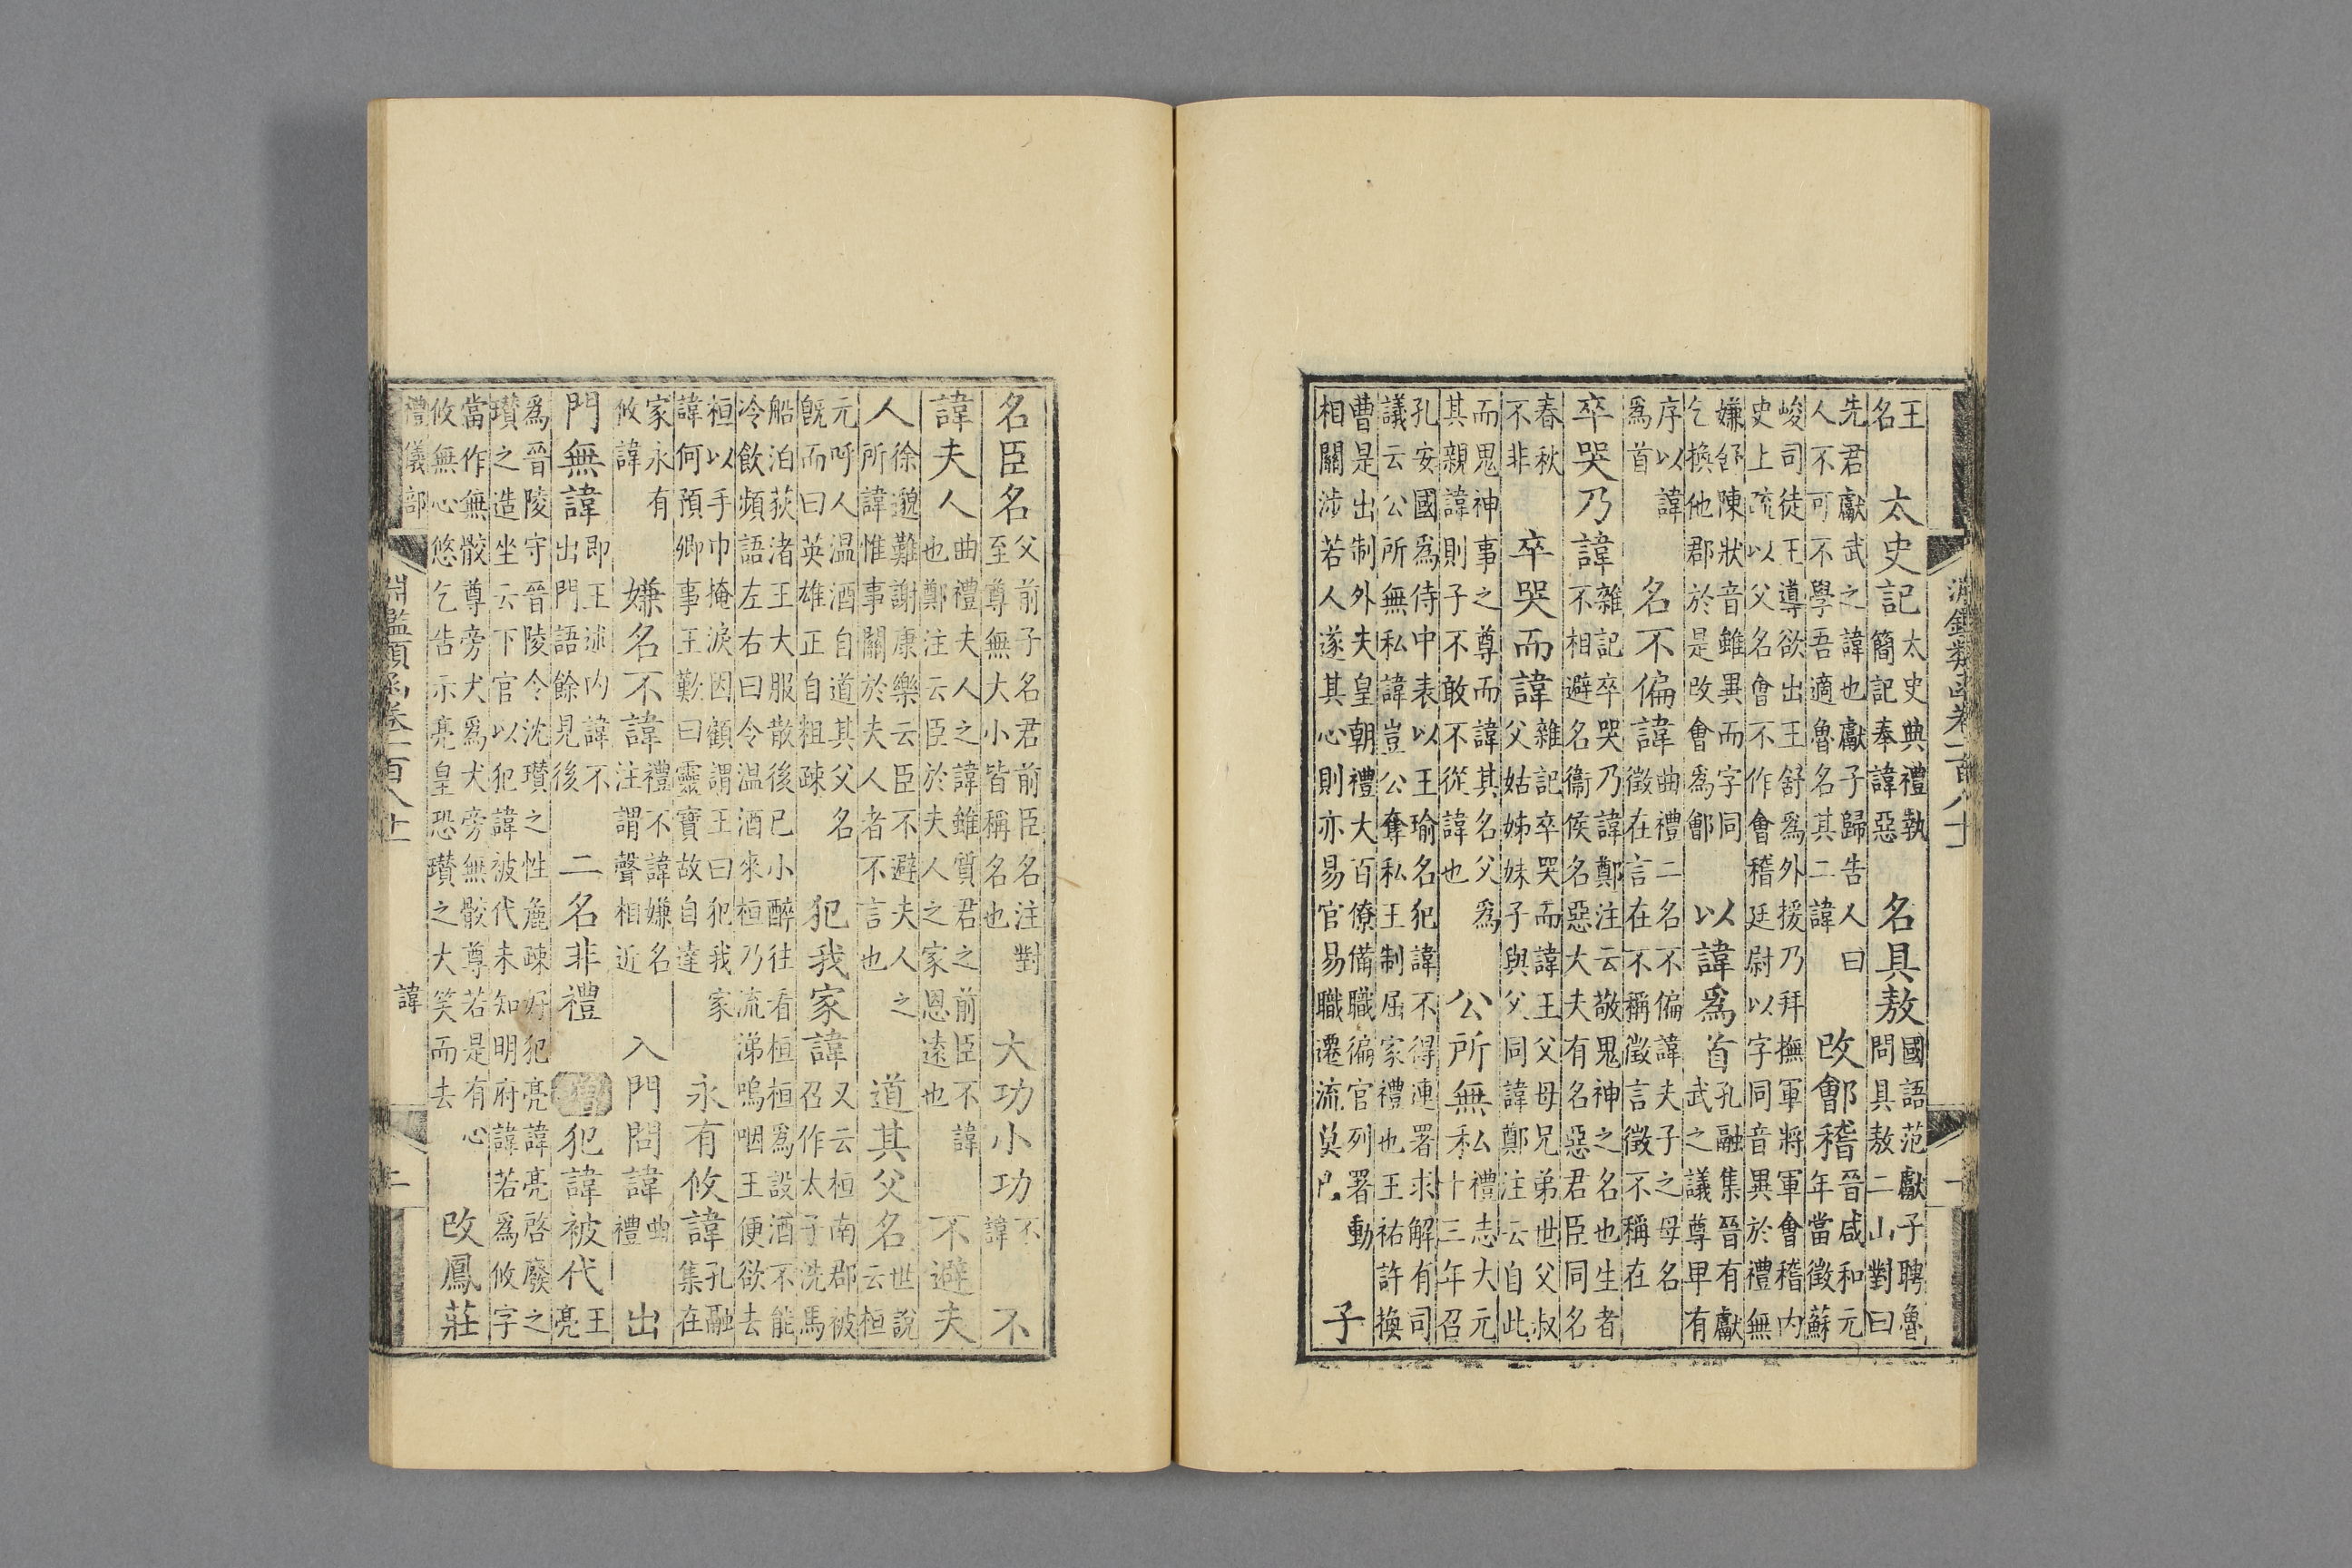 淵鑑類函卷一百八十 一
王
名
太史記
太史典禮執
簡記奉諱惡
名具敖
國語范獻子聘魯
問具敖二山對曰
先君獻武之諱也獻子歸告人曰
人不可不學吾適魯名其二諱
改鄶稽
晉咸和元
年當徵蘇
峻司徒王導欲出王舒爲外援乃拜撫軍將軍會稽內
史上疏以父名會不作會稽廷尉以字同音異於禮無
嫌舒陳狀音雖異而字同
乞換他郡於是改會爲鄶
以諱爲首
孔融集晉有獻
武之議尊卑有
序以諱
爲首
名不偏諱
曲禮二名不偏諱夫子之母名
徵在言在不稱徵言徵不稱在
卒哭乃諱
雜記卒哭乃諱鄭注云敬鬼神之名也生者
不相避名衞侯名惡大夫有名惡君臣同名
春秋
不非
卒哭而諱
雜記卒哭而諱王父母兄弟世父叔
父姑姊妹子與父同諱鄭注云自此
而鬼神事之尊而諱其名父爲
其親諱則子不敢不從諱也
公所無私
禮志大元
十三年召
孔安國爲侍中表以王瑜名犯諱不得連署求解有司
議云公所無私諱豈公奪私王制屈家禮也王祐許換
曹是出制外夫皇朝禮大百僚備職徧官列署動
相關涉若人遂其心則亦易官易職遷流莫
子
名臣名
父前子名君前臣名注對
至尊無大小皆稱名也
大功小功
不
諱
不
諱夫人
曲禮夫人之諱雖質君之前臣不諱
也鄭注云臣於夫人之家恩遠也
不避夫
人
徐邈難謝康樂云臣不避夫人之
所諱惟事關於夫人者不言也
道其父名
世說
云桓
元呼人温酒自道其父名
旣而曰英雄正自粗疎
犯我家諱
又云桓南郡被
召作太子洗馬
船泊荻渚王大服散後已小醉往看桓桓爲設酒不能
冷飲頻語左右曰令温酒來桓乃流涕嗚咽王便欲去
桓以手巾掩淚因顧謂王曰犯我家
諱何預卿事王歎曰靈寶故自達
永有攸諱
孔融
集在
家永有
攸諱
嫌名不諱
禮不諱嫌名
注謂聲相近
入門問諱
曲
禮
出
門無諱
即王述內諱不
出門語餘見後
二名非禮
犯諱被代
王
亮
爲晉陵守晉陵令沈瓚之性麁疎好犯亮諱亮啓廢之
瓚之造坐云下官以犯諱被代未知明府諱若爲攸字
當作無骹尊旁犬爲犬旁無骹尊若是有心
攸無心悠乞告示亮皇恐瓚之大笑而去
改鳳莊
禮儀部 淵鑑類函卷一百八十 諱 二